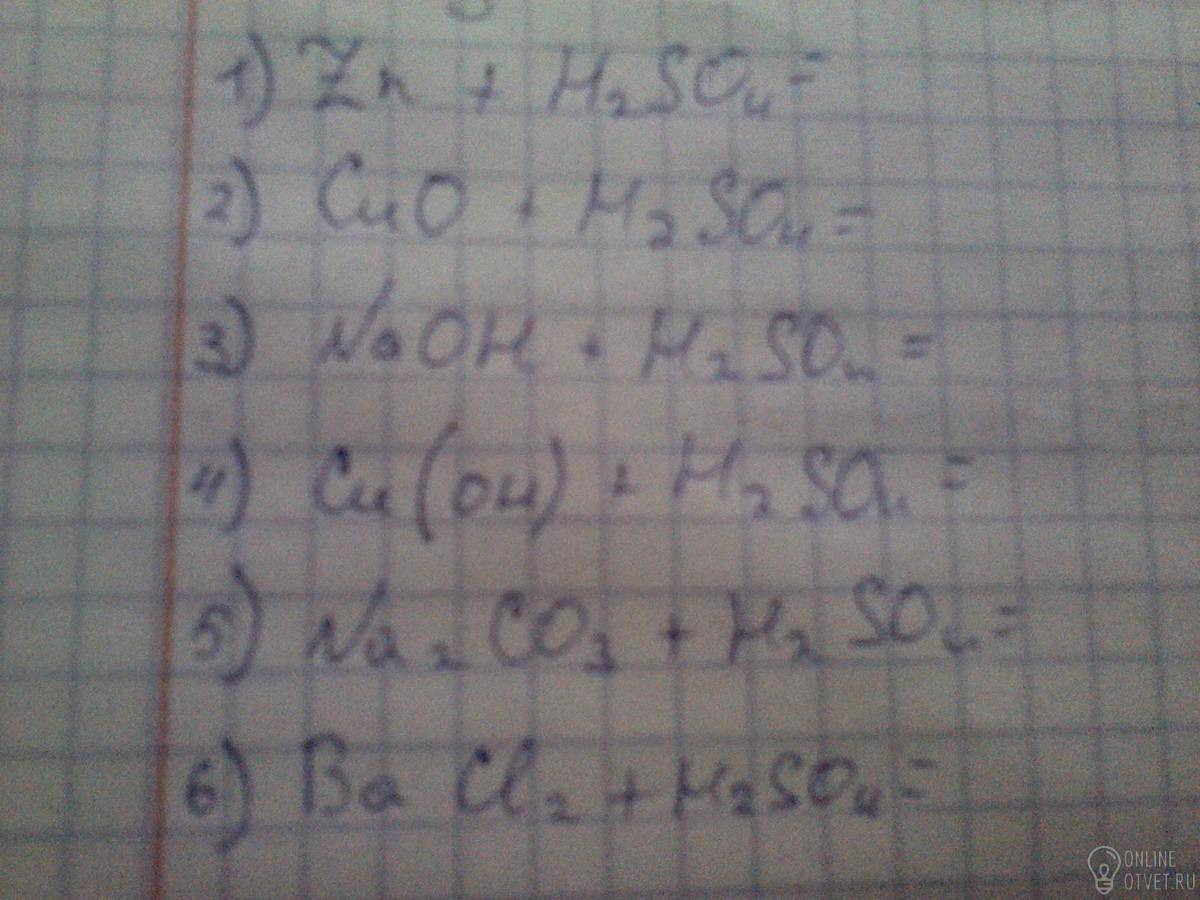 1) Zn + H₂SO₄ =
2) CuO + H₂SO₄ =
3) NaOH + H₂SO₄ =
4) Cu(OH) + H₂SO₄ =
5) Na₂CO₃ + H₂SO₄ =
6) BaCl₂ + H₂SO₄ =
ONLINE
OTVET.RU